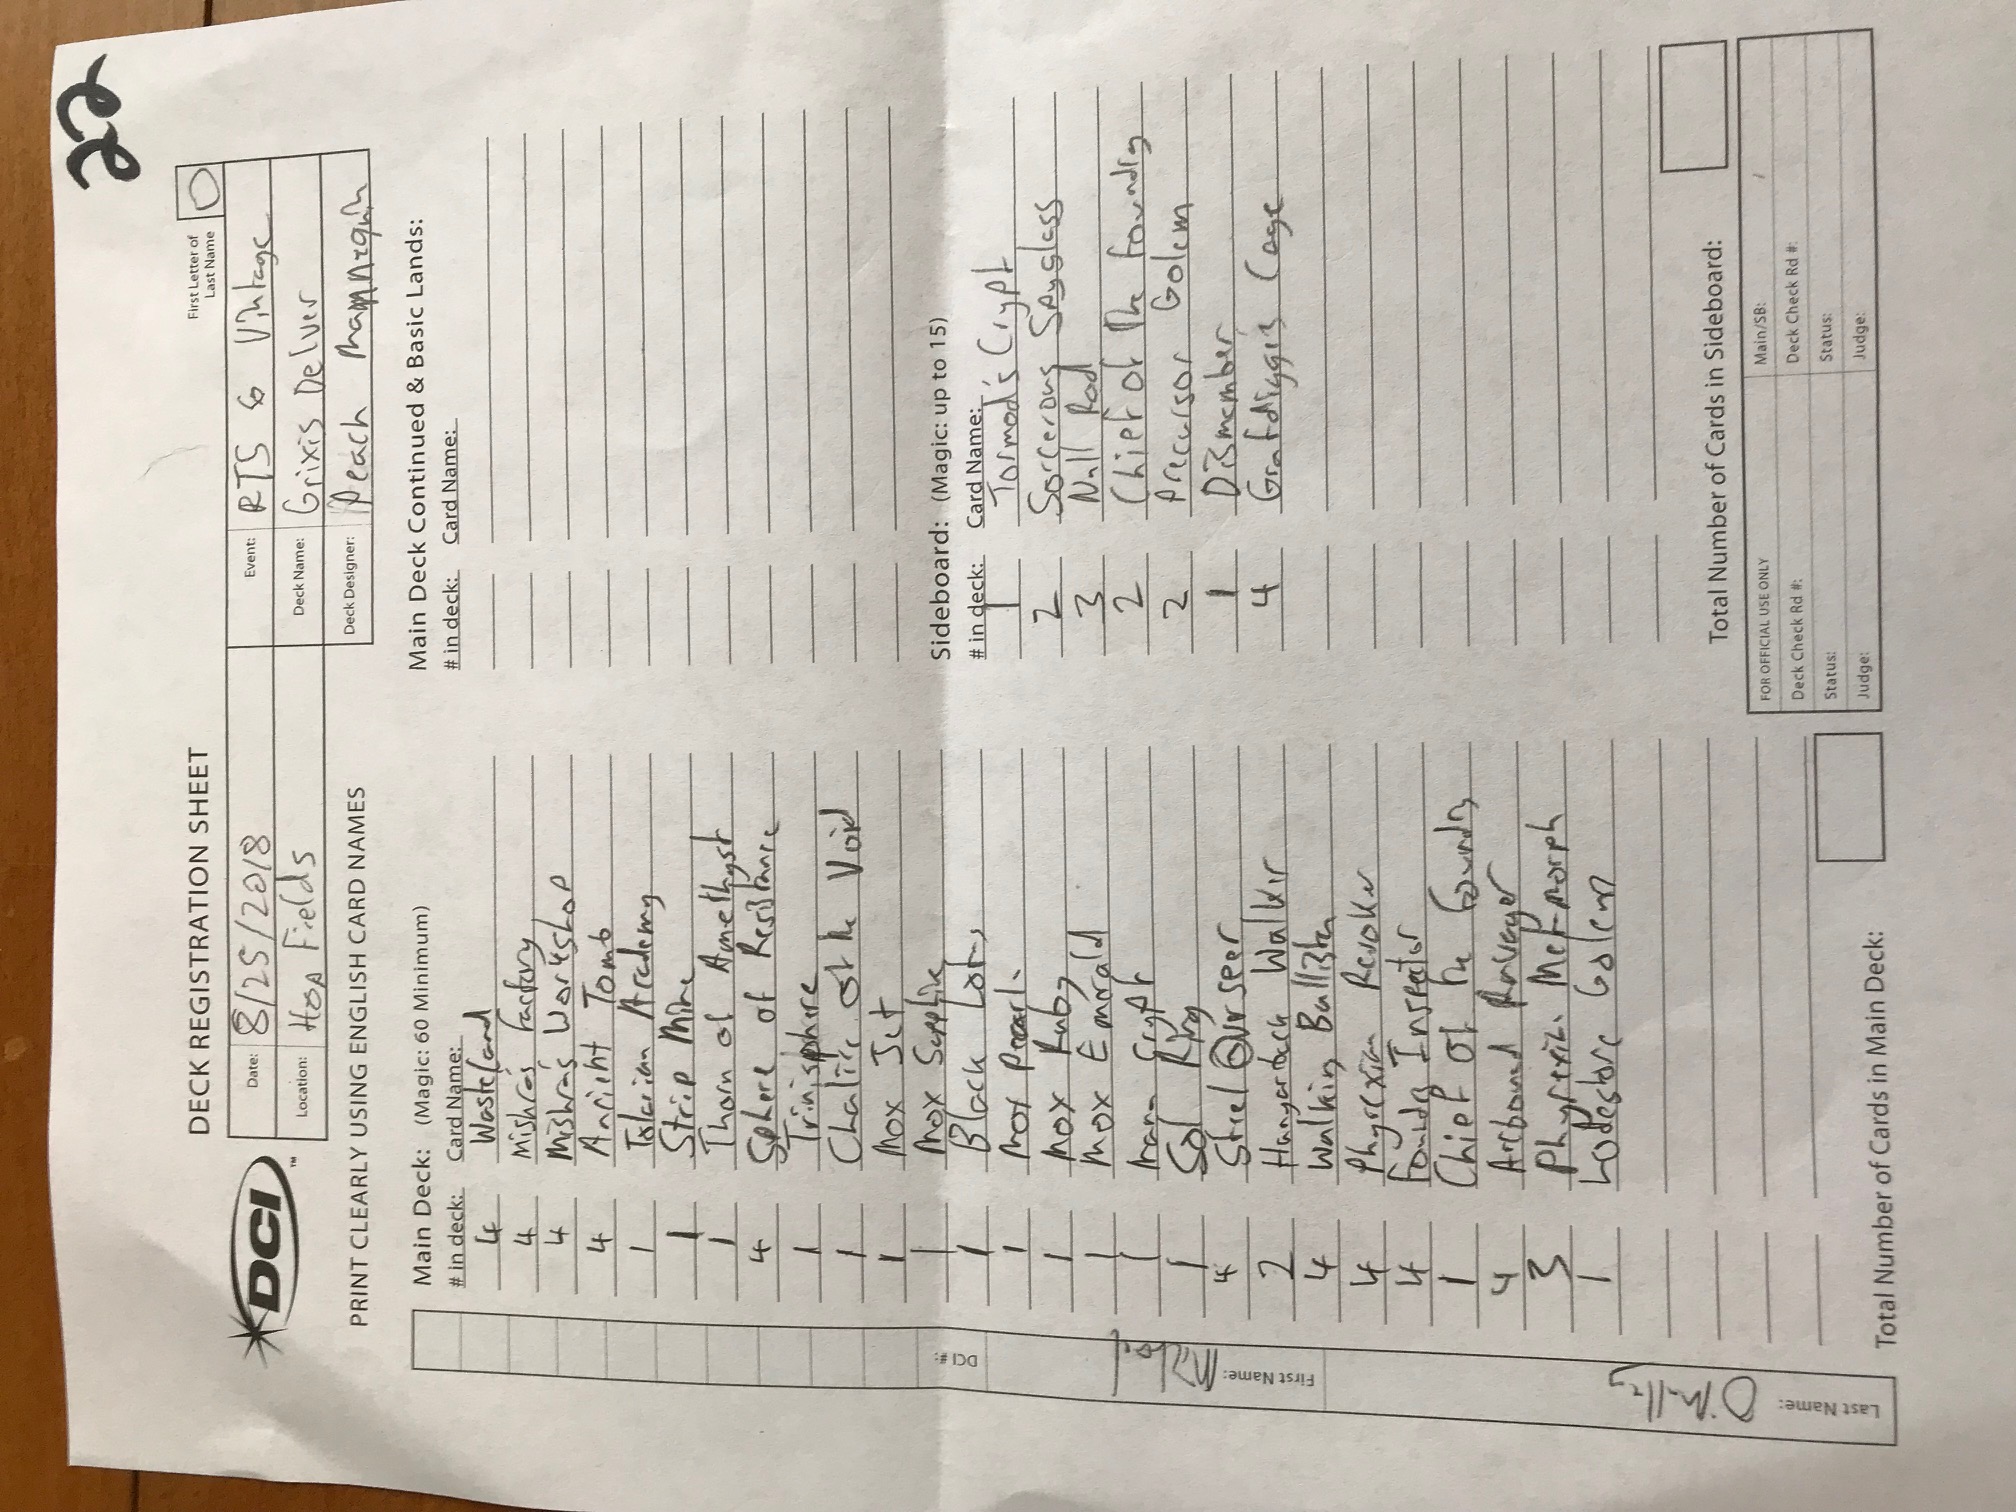 22
DECK REGISTRATION SHEET
First Letter of
Last Name
O
DCI
TM
Date: 8/25/2018
Event: RTS 6 Vintage
Location: Hop Fields
Deck Name: Grixis Delver
Deck Designer: Peach Mannequin
PRINT CLEARLY USING ENGLISH CARD NAMES
Main Deck: (Magic: 60 Minimum)
# in deck: Card Name:
4 Wasteland
4 Mishra's Factory
4 Mishra's Workshop
4 Ancient Tomb
1 Tolarian Academy
1 Strip Mine
1 Thorn of Amethyst
4 Sphere of Resistance
1 Trinisphere
1 Chalice of the Void
1 Mox Jet
1 Mox Sapphire
1 Black Lotus
1 Mox Pearl
1 Mox Ruby
1 Mox Emerald
1 Mana Crypt
1 Sol Ring
Steel Overseer
2 Hangarback Walker
4 Walking Ballista
4 Phyrexian Revoker
4 Foundry Inspector
1 Chief of the Foundry
4 Arcbound Ravager
3 Phyrexian Metamorph
1 Lodestone Golem
Total Number of Cards in Main Deck:
Main Deck Continued & Basic Lands:
# in deck: Card Name:
Sideboard: (Magic: up to 15)
# in deck: Card Name:
1 Tormod's Crypt
2 Sorcerous Spyglass
3 Null Rod
2 Chief of the Foundry
2 Precursor Golem
1 Dismember
4 Grafdigger's Cage
Total Number of Cards in Sideboard:
FOR OFFICIAL USE ONLY
Main/SB:
Deck Check Rd #:
Deck Check Rd #:
Status:
Status:
Judge:
Judge:
Last Name: O'Malley
First Name: Michael
DCI #: